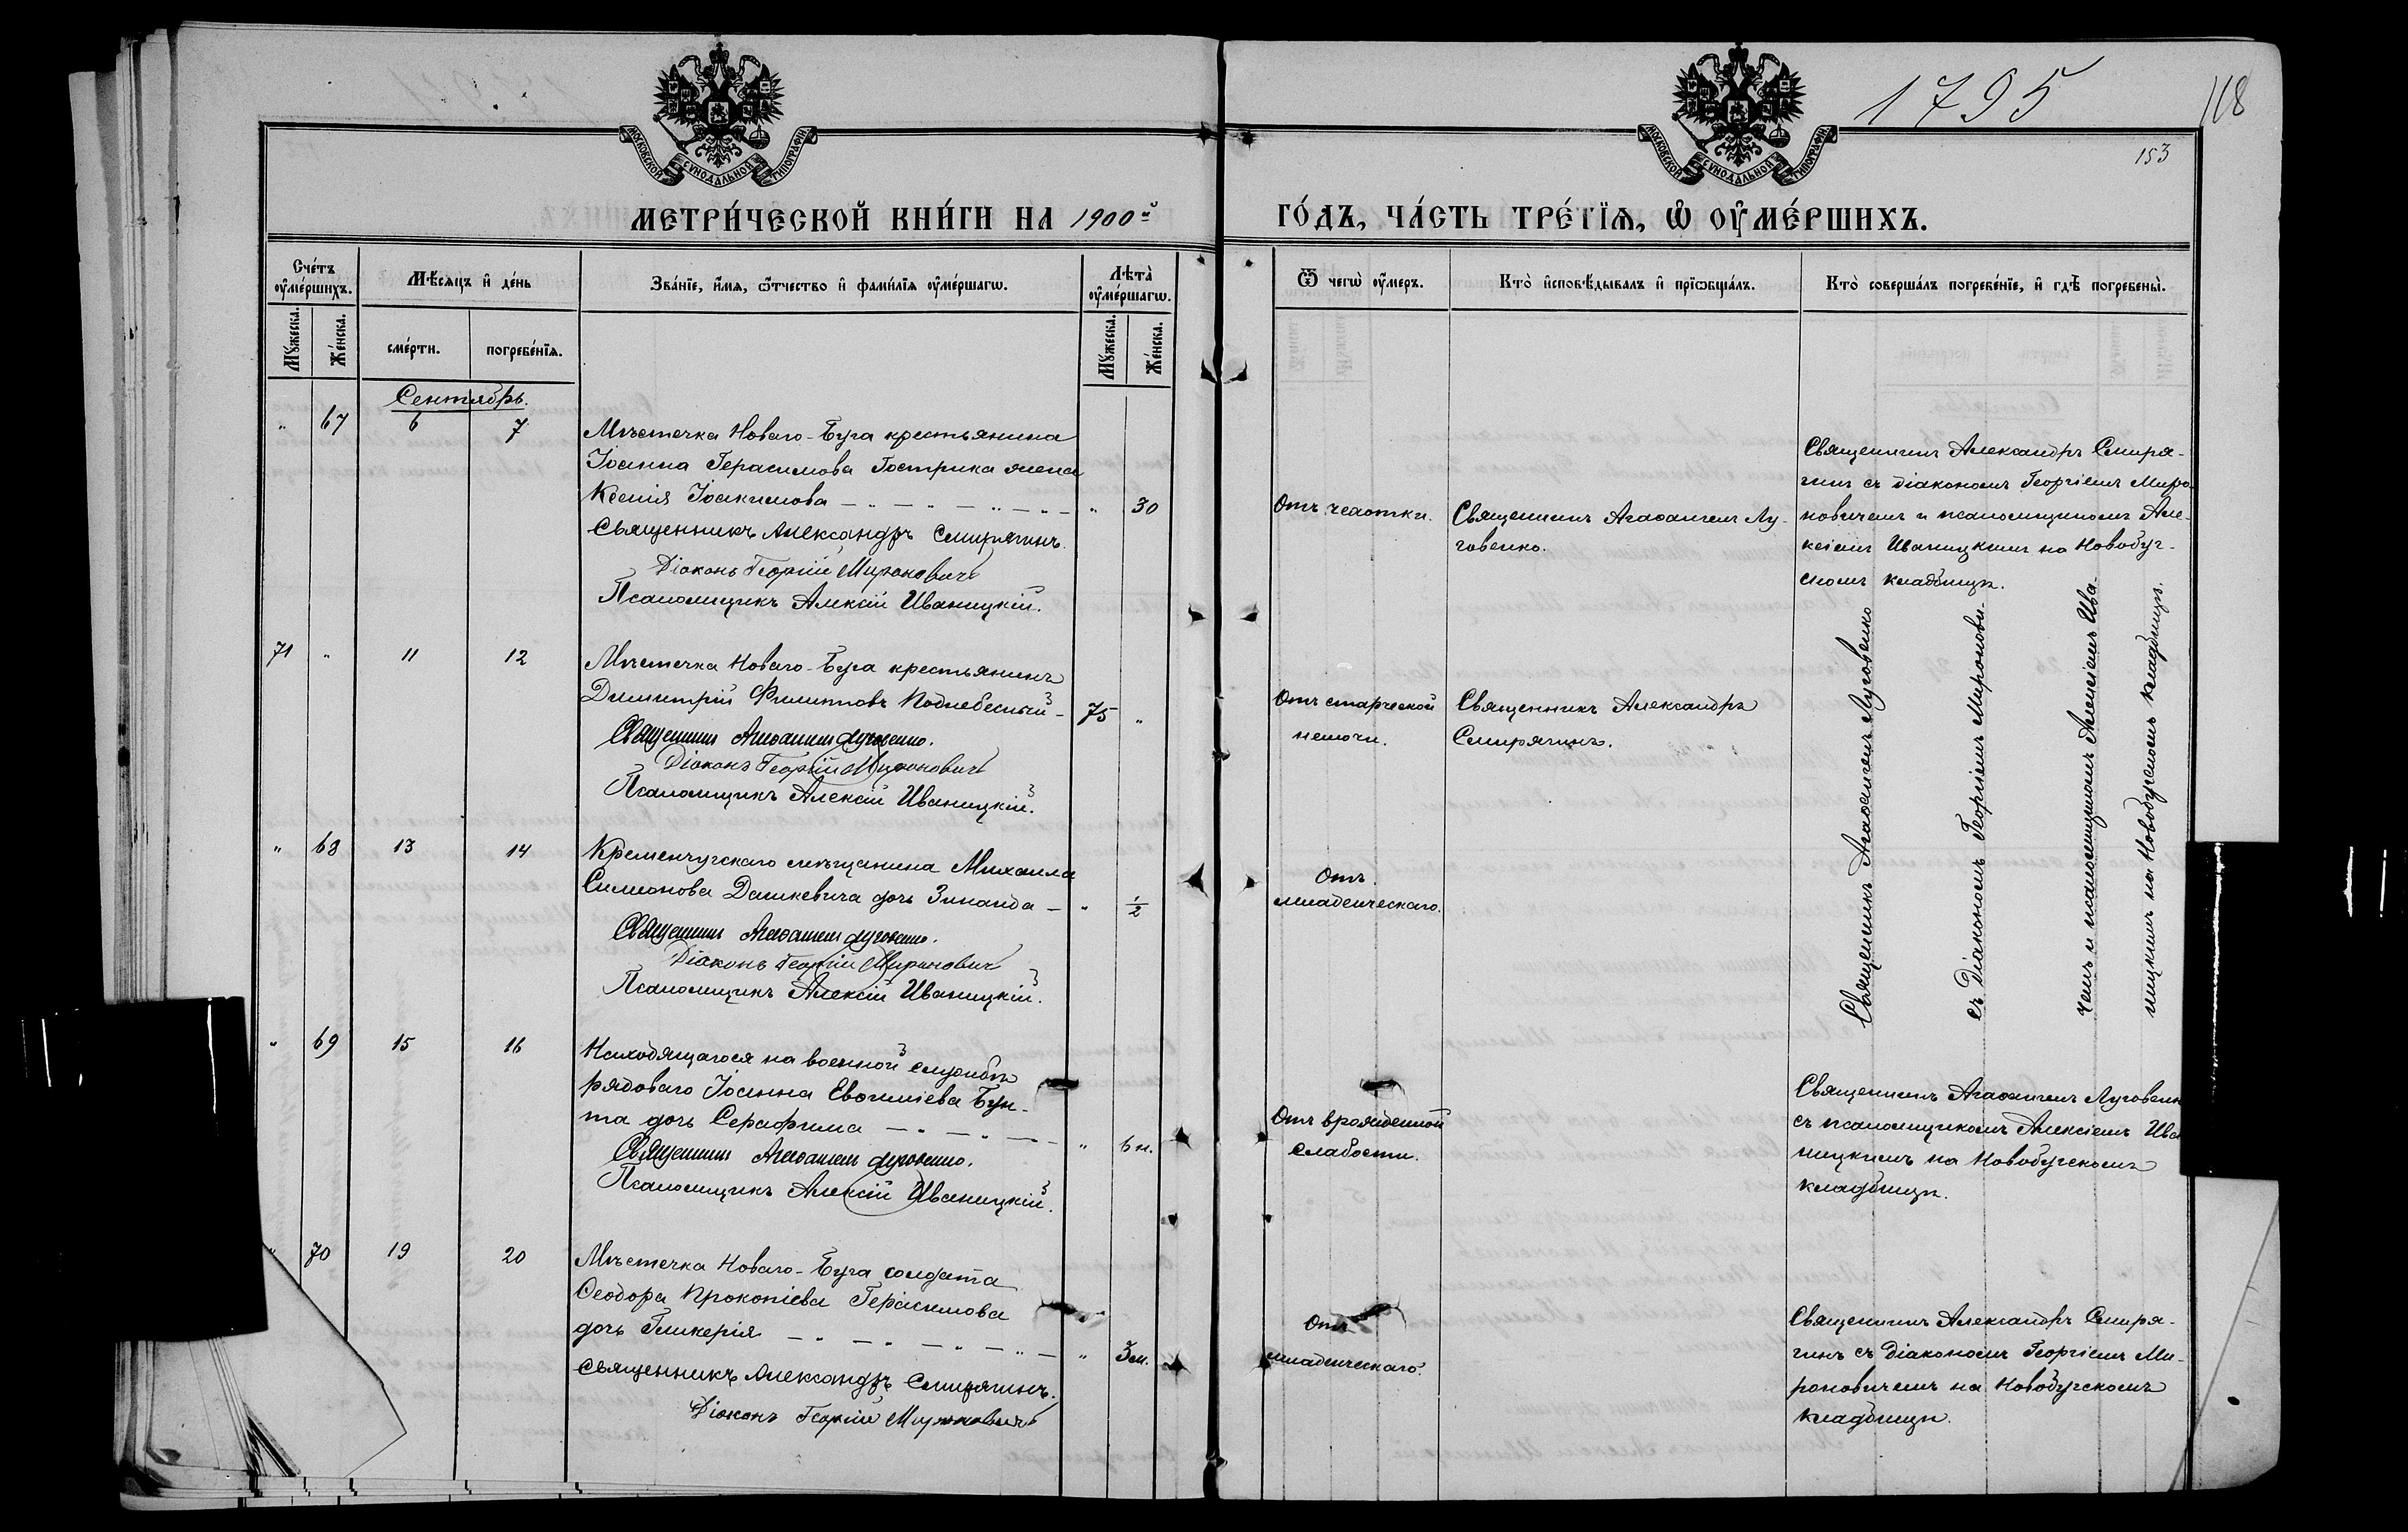 1795
118
153
МОСКОВСКОЙ СѴНОДАЛЬНОЙ ТИПОГРАФІИ
МОСКОВСКОЙ СѴНОДАЛЬНОЙ ТИПОГРАФІИ
МЕТРИ́ЧЕСКОЙ КНИ́ГИ НА 1900й ГО́ДЪ, ЧА́СТЬ ТРЕ́ТЇѦ, Ѡ҆ ОУ҆МЕ́РШИХЪ.
Сче́тъ оу҆ме́ршихъ.
Мꙋ́жеска.
Же́нска.
Мѣ́сѧцъ и҆ де́нь
сме́рти.
погребе́нїѧ.
Зва́нїе, и҆́мѧ, ѻ҆́тчество и҆ фами́лїѧ оу҆ме́ршагѡ.
Лѣта̀ оу҆ме́ршагѡ.
Мꙋ́жеска.
Же́нска.
Ѿ чегѡ̀ оу҆́меръ.
Кто̀ и҆сповѣ́дывалъ и҆ прїѡбща́лъ.
Кто̀ соверша́лъ погребе́нїе, и҆ гдѣ̀ погребены̀.
Сентябрь.
" 67 6 7
Мѣстечка Новаго-Буга крестьянина
Іоанна Герасимова Гострика жена
Ксенія Іоакимова — " — " — " — " — " 30
Священникъ Александръ Смирягинъ.
Діаконъ Георгій Мироновичъ
Псаломщикъ Алексій Иваницкій.
Отъ чахотки.
Священникъ Агаѳангелъ Лу-
говенко.
Священникъ Александръ Смиря-
гинъ съ діакономъ Георгіемъ Миро-
новичемъ и псаломщикомъ Але-
ксіемъ Иваницкимъ на Новобуг-
скомъ кладбищѣ.
71 " 11 12
Мѣстечка Новаго-Буга крестьянинъ
Димитрій Филипповъ Поднебесный — 75 "
Священникъ Агаѳангелъ Луговенко.
Діаконъ Георгій Мироновичъ
Псаломщикъ Алексій Иваницкій.
Отъ старческой
немочи.
Священникъ Александръ
Смирягинъ.
Священникъ Агаѳангелъ Луговенко
съ Діакономъ Георгіемъ Миронови-
чемъ и псаломщикомъ Алексіемъ Ива-
ницкимъ на Новобугскомъ кладбищѣ.
" 68 13 14
Кременчугскаго мѣщанина Михаила
Симеонова Дашкевича дочь Зинаида — " 1/2
Священникъ Агаѳангелъ Луговенко.
Діаконъ Георгій Мироновичъ
Псаломщикъ Алексій Иваницкій.
Отъ
младенческаго.
" 69 15 16
Находящагося на военной службѣ
рядоваго Іоанна Евѳиміева Бун-
та дочь Серафима — " — " — " — " 6 н.
Священникъ Агаѳангелъ Луговенко.
Псаломщикъ Алексій Иваницкій.
Отъ врожденной
слабости.
Священникъ Агаѳангелъ Луговенк
съ псаломщикомъ Алексіемъ Ива
ницкимъ на Новобугскомъ
кладбищѣ.
" 70 19 20
Мѣстечка Новаго-Буга солдата
Ѳеодора Прокопіева Герасимова
дочь Гликерія — " — " — " — " — " 3 м.
Священникъ Александръ Смирягинъ.
Діаконъ Георгій Мироновичъ
Отъ
младенческаго.
Священникъ Александръ Смиря-
гинъ съ Діакономъ Георгіемъ Ми-
роновичемъ на Новобугскомъ
кладбищѣ.